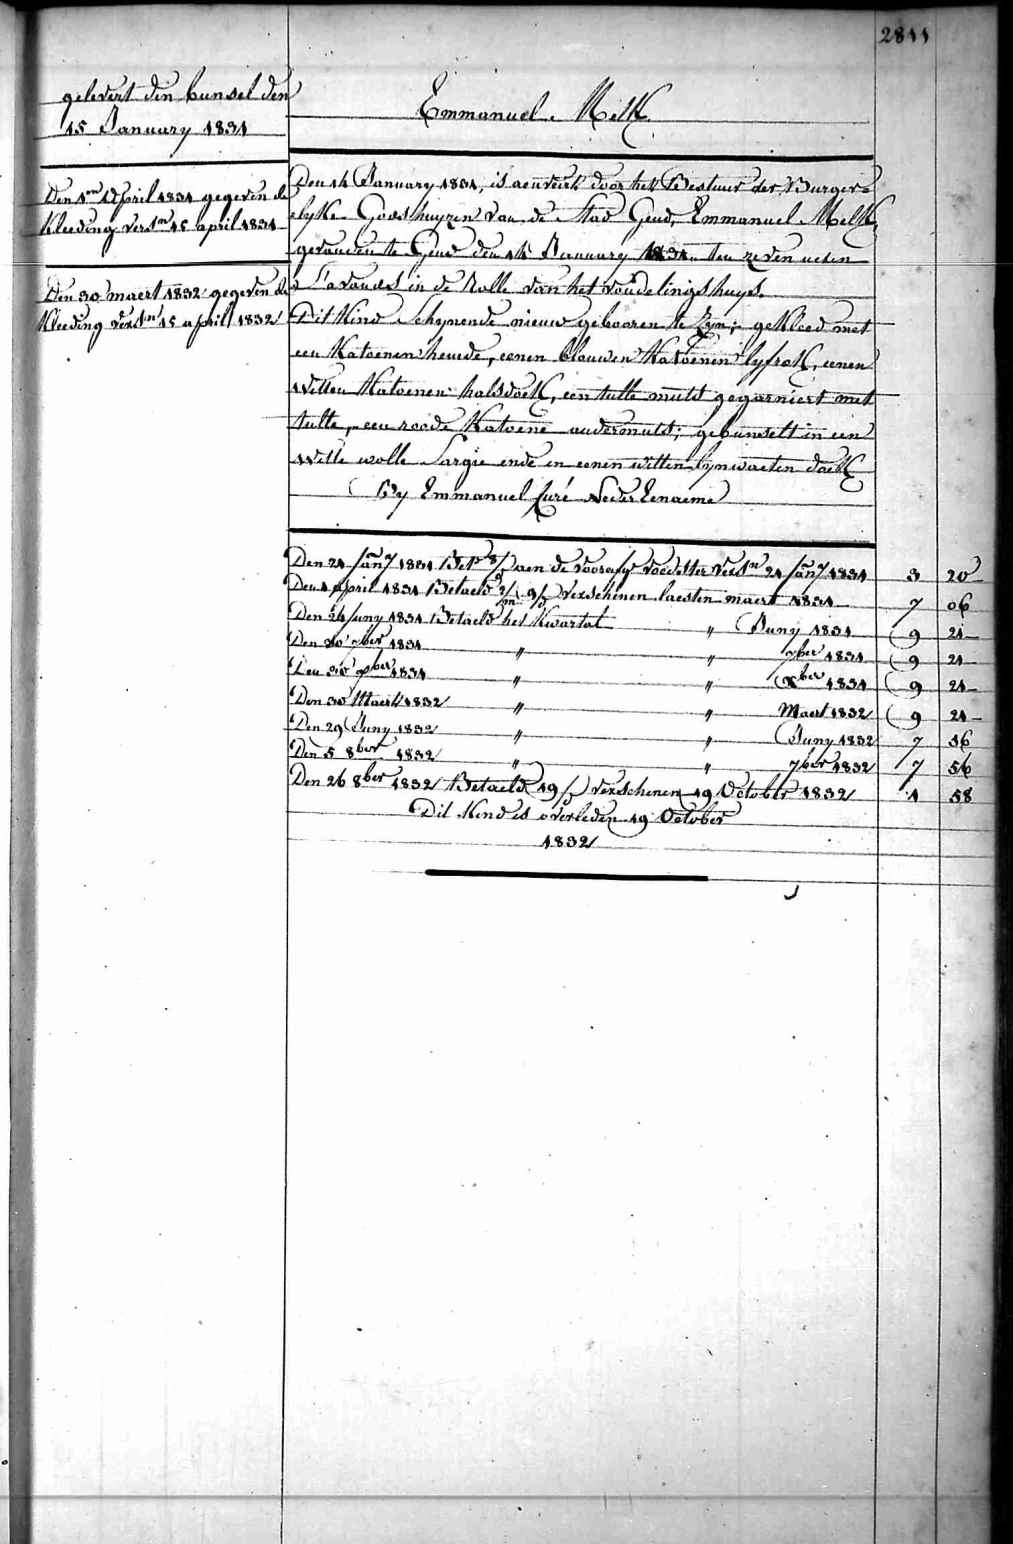 2811
gelevert den bunsel den
15 January 1831
Emmanuel Melk
Den 1en April 1831 gegeven de
Kleeding versn 15 april 1831
Den 30 maert 1832 gegeven de
Kleeding versn 15 april 1832
Den 14 January 1831, is aenveirt door het Bestuur der Burger=
lyke Godshuyzen van de Stad Gend, Emmanuel Melk,
gevonden te Gend den 14 January 1831 ten zeven uren
s'avonds in de Rolle van het vondelingshuys.
Dit Kind Schynende nieuw gebooren te Zyn; gekleed met
een Katoenen hemde, eenen blauwen Katoenen lyfrok, eenen
witten Katoenen halsdoek, een tulle muts gegarniert met
tulle, een roode Katoene ondermuts; gebunselt in een
witte wolle Sargie ende in eenen witten lynwaeten doek
By Emmanuel Curé Neder Eenaeme
Den 21 Jany 1831 Bet aen de voorafg voedster versn 21 Jany 1831 3 20
Den 1 April 1831 Betaeld 2/m 9/d verschenen laesten maert 1831 7 06
Den 24 Juny 1831 Betaeld het Kwartal " Juny 1831 9 21
Den 30 7ber 1831 " " 7ber 1831 9 21
Den 30 xber 1831 " " xber 1831 9 21
Den 30 Maert 1832 " " Maert 1832 9 21
Den 29 Juny 1832 " " Juny 1832 7 56
Den 5 8ber 1832 " " 7ber 1832 7 56
Den 26 8ber 1832 Betaeld 19/d verschenen 19 October 1832 1 58
Dit Kind is overleden 19 October
1832